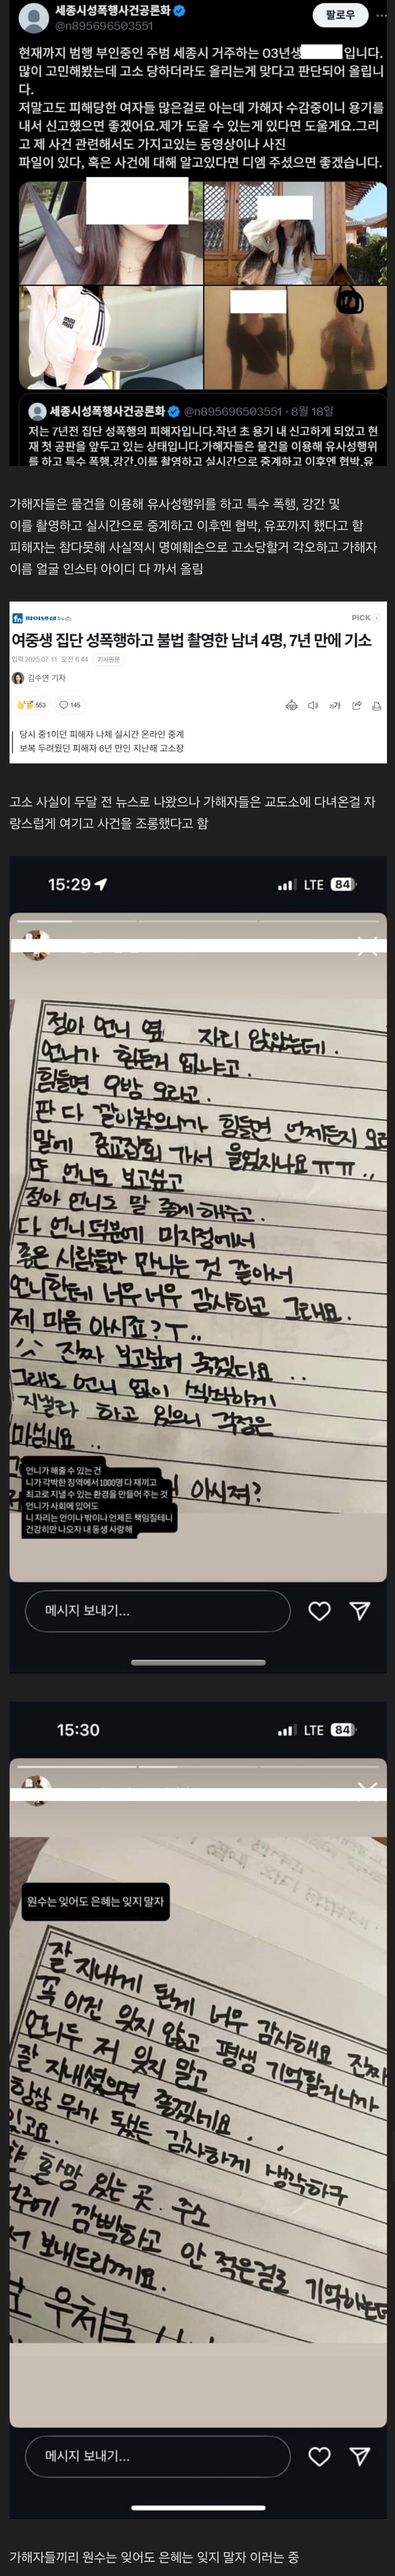 세종시성폭행사건공론화
@n895696503551
팔로우
현재까지 범행 부인중인 주범 세종시 거주하는 03년생 입니다.
많이 고민해봤는데 고소 당하더라도 올리는게 맞다고 판단되어 올립니
다.
저말고도 피해당한 여자들 많은걸로 아는데 가해자 수감중이니 용기를
내서 신고했으면 좋겠어요.제가 도울 수 있는게 있다면 도울게요.그리
고 제 사건 관련해서도 가지고있는 동영상이나 사진
파일이 있다, 혹은 사건에 대해 알고있다면 디엠 주셨으면 좋겠습니다.
miu
miu
세종시성폭행사건공론화 @n895696503551 · 8월 18일
저는 7년전 집단 성폭행의 피해자입니다.작년 초 용기 내 신고하게 되었고 현
재 첫 공판을 앞두고 있는 상태입니다.가해자들은 물건을 이용해 유사성행위
를 하고 특수 폭행,강간,이를 촬영하고 실시간으로 중계하고 이후엔 협박,유
가해자들은 물건을 이용해 유사성행위를 하고 특수 폭행, 강간 및
이를 촬영하고 실시간으로 중계하고 이후엔 협박, 유포까지 했다고 함
피해자는 참다못해 사실적시 명예훼손으로 고소당할거 각오하고 가해자
이름 얼굴 인스타 아이디 다 까서 올림
fn 파이낸셜뉴스
PICK
여중생 집단 성폭행하고 불법 촬영한 남녀 4명, 7년 만에 기소
입력 2025.07.11. 오전 6:44 기사원문
김수연 기자
553 145
가
당시 중1이던 피해자 나체 실시간 온라인 중계
보복 두려웠던 피해자 6년 만인 지난해 고소장
고소 사실이 두달 전 뉴스로 나왔으나 가해자들은 교도소에 다녀온걸 자
랑스럽게 여기고 사건을 조롱했다고 함
15:29 LTE 84
정아 언니 옆 자리 앉았는데.
언니가 힘든거 없냐고.
힘들면 오방 오라고.
판 다 깔아놨으니까 힘들면 언제든지 오라
말에 종교집회 가서 울었지나요 ㅠㅠ..
또 언니도 보고싶고
정아 언니도 말 좋게 해주고.
다 언니 덕분에 미지정에서
좋은 사람들만 만나는 것 같아서
언니한테 너무 너무 감사하고 그래요.
제 마음 아시죠?ㅜ..
진짜 보고싶어 죽겠다요..
그래도 언니 없이 씩씩하게
지낼라 하고 있으니 걱정은
마십시요..
아시져?
언니가 해줄 수 있는 건
니가 각박한 징역에서 1000명 다 재끼고
최고로 지낼 수 있는 환경을 만들어 주는 것
언니가 사회에 있어도
니 자리는 안이나 밖이나 언제든 책임질테니
건강히만 나오자 내 동생 사랑해
메시지 보내기...
15:30 LTE 84
원수는 잊어도 은혜는 잊지 말자
잘 지내게 된게 너무 감사해요 진짜
꼭 이건 잊지 않고 평생 기억할거니까
언니두 저 잊지 말고
잘 지내셨으면 좋겠네요..
항상 뭐가 됐든 감사하게 생각하구
있고요.
희망 있는 곳. 주소
깜빡하고 안 적은걸로 기억하는데
서 보내드릴께요.
메시지 보내기...
가해자들끼리 원수는 잊어도 은혜는 잊지 말자 이러는 중